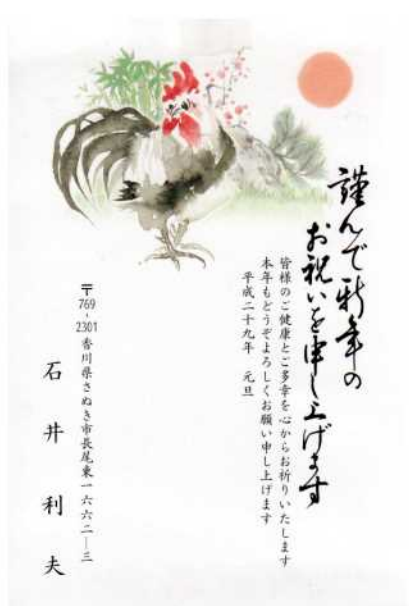 謹んで新年の
お祝いを申し上げます
皆様のご健康とご多幸を心からお祈りいたします
本年もどうぞよろしくお願い申し上げます
平成二十九年 元旦
〒769-2301 香川県さぬき市長尾東一六六二―三
石井利夫